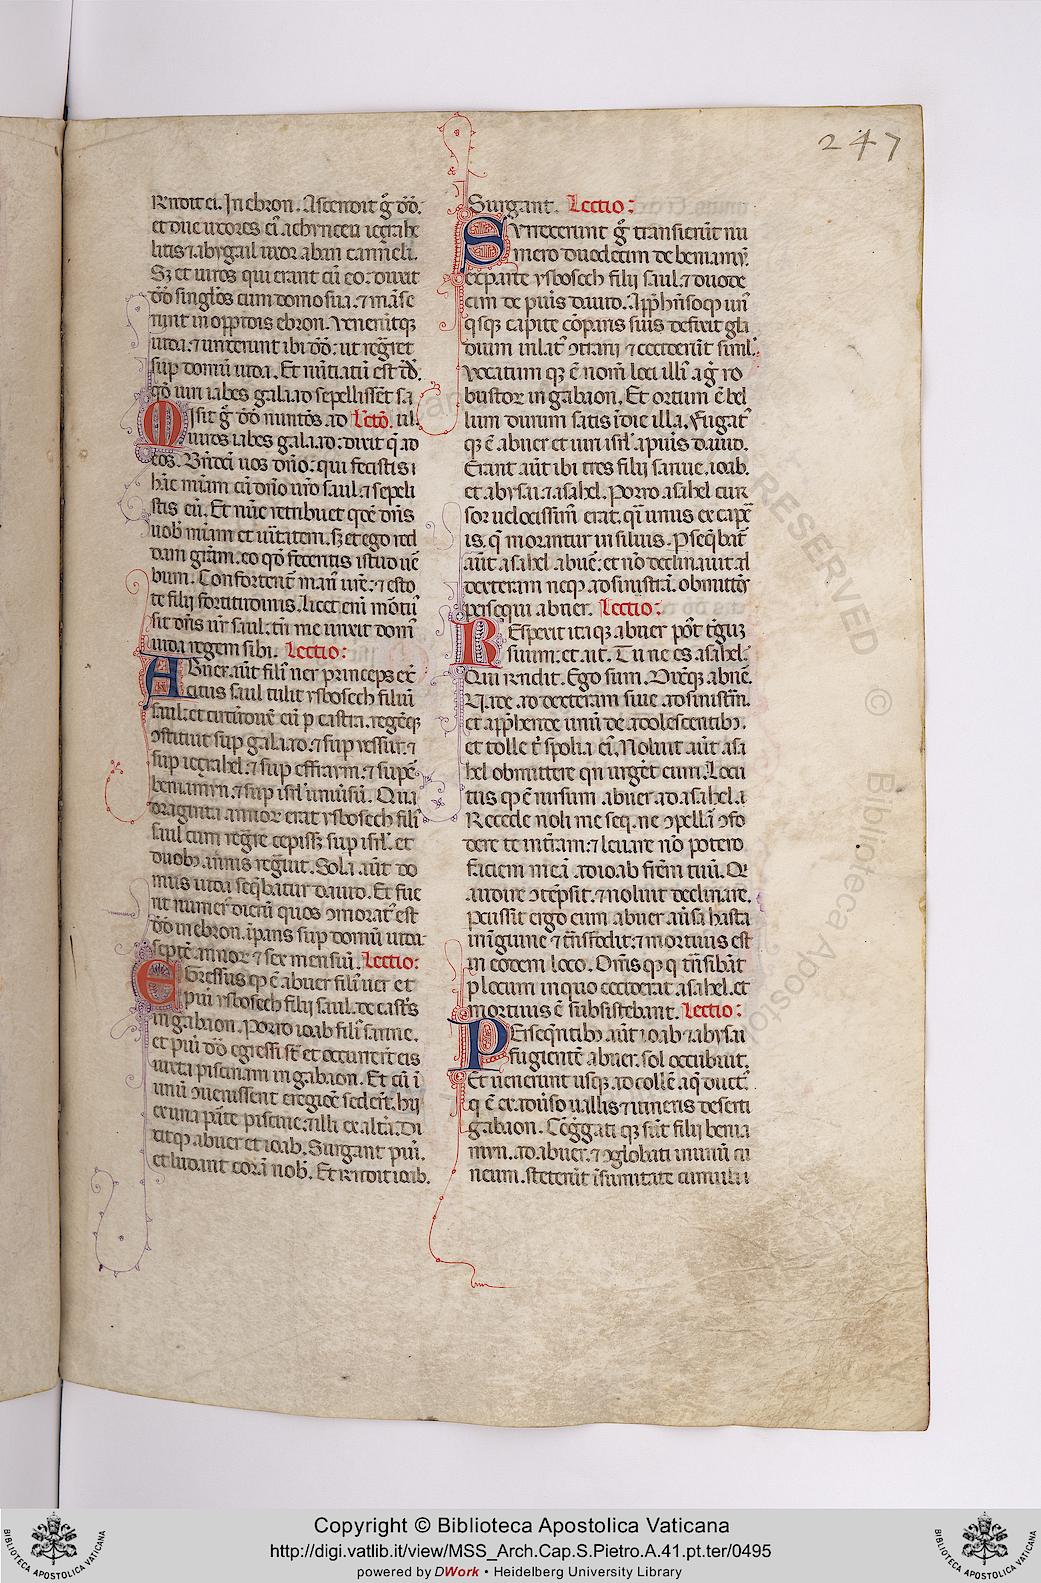 247
Rñdit ei. In ebron. Ascendit g̃ dd̃.
et due uxores ei᾽ achynoem iezrahe
litis ⁊ abygail uxor abau carmeli.
Sꝫ et uiros qui erant cũ eo. duxit
dd̃ singl̃os cum domo sua. ⁊ mãse
runt in opp̃idis ebron. Veneruntqꝫ
iuda. ⁊ unxerunt ibi dd̃. ut reg̃ret
sup domũ iuda. Et nũtiatũ est dd̃.
qd̃ uiri iabes galaad sepellissẽt sa
Misit g̃ dd̃ nuntios ad Lectõ. ul.
uiros iabes galaad. dixit qꝫ ad
eos. Bñdcĩ uos dño. qui fecistis
hãc miam cũ dño urõ saul. ⁊ sepeli
stis eũ. Et nũc retribuet qdẽ dñs
uob̃ miam et uitatem. sꝫ et ego red
dam grãm. eo qd̃ feceritis istud uẽ
bum. Confortent᾽ man᾽ ure. ⁊ esto
te filij fortitudinis. licet eni᾽ mortu᾽
sit dñs ur̃ saul. tñ me unxit dom᾽
iuda regem sibi. Lectio:
Abner aũt fili᾽ ner princeps ex̃
citus saul tulit ysbosech filiũ
saul. et circũduxẽ eũ p castra. regẽqꝫ
ɔstituit sup galaad. ⁊ sup yessur. ⁊
sup iezrahel. ⁊ sup effraym. ⁊ supẽ
beniamyn. ⁊ sup isrl̃ uniũsũ. Qua
draginta annor erat ysbosech fili᾽
saul cum reg̃re cepissꝫ sup isrl̃. et
duobꝫ annis reg̃uit. Sola aũt do
mus iuda seq̃batur dauid. Et fue
rũt numer᾽ dierũ quos ɔmorat᾽ est
dd̃ in ebron. ip̃ans sup domũ iuda.
septẽ annor ⁊ sex mensiũ. Lectio:
Egressus qꝫ ẽ abner fili᾽ ner et
pui᾽ ysbosech filij saul. de cast᾽s
in gabaon. Porro ioab fili᾽ saruie.
et pui᾽ dd̃ egressi st̃ et occurrerũt eis
iuxta piscinam in gabaon. Et cũ ĩ
unũ ɔuenissent e regiõe sederũt. hij
ex una pãte piscine. ⁊ illi ex altã. Di
xitqꝫ abner et ioab. Surgant pui᾽.
et ludant corã nob̃. Et rñdit ioab.
Surgant. Lectio:
Surrexerunt g̃ ⁊ transierũt nu
mero duodecim de beniamy.
ex parte ysbosech filij saul. ⁊ duode
cim de pueris dauid. App̃hñsoqꝫ un᾽
q̃sqꝫ capite cõparis suis defixit gla
dium in lat᾽ ɔtrarij ⁊ cecider̃ut simľ.
Vocatum qꝫ ẽ nom̃ loci illi᾽ ag᾽ ro
bustor in gabaon. Et ortum ẽ bel
lum durum satis ĩ die illa. Fugat᾽
qꝫ ẽ abner et uiri isrl̃ a pũis dauid.
Erant aũt ibi tres filij saruie. ioab.
et abysai. ⁊ asahel. Porro asahel cur
sor uelocissim᾽ erat. q̃i unus ex capẽ
is. q̃ morantur in siluis. Pseq̃bat᾽
aũt asahel abnẽ. et nõ declinauit ad
dexteram neqꝫ ad sinistrã. obmittẽs
persequi abner. Lectio:
Respexit itaqꝫ abner põt t᾽guꝫ
suum. et ait. Tu ne es asahel.
Qui rñdit. Ego sum. Dix̃qꝫ abne᾽.
Uade. ad dexteram siue ad sinistrã.
et app̃hende unũ de adolescentibꝫ.
et tolle t᾽ spolia ei᾽. Noluit aũt asa
hel obmittere q̃n urgẽt eum. Locu
tus qꝫ ẽ rursum abner ad asahel.
Recede noli me seq̃. ne ɔpella᾽ ɔfo
dere te in tr̃am. ⁊ leuare nõ potero
faciem meã ad ioab fr̃em tuũ. Qi
audire ɔtẽpsit. ⁊ noluit declinare.
Pcussit ergo eum abner aũsa hasta
in ĩguine ⁊ t᾽nsfodit. ⁊ mortuus est
in eodem loco. Om̃s qꝫ q̃ tr̃nsibãt
p locum in quo ceciderat asahel. et
mortuus ẽ subsistebant. Lectio:
Persequẽtibꝫ aũt ioab ⁊ abysai
fugientẽ abner. sol occubuit.
Et uenerunt usqꝫ ad collẽ aq̃duct᾽.
q̃ ẽ ex aduso uallis ⁊ itineris deserti
gabaon. Cõg̃gati qꝫ sũt filij benia
myn. ad abner. ⁊ ɔglobati in unũ cu
neum. steterũt ĩ sumitate cumuli
RESERVED © Biblioteca Apostolica
Copyright © Biblioteca Apostolica Vaticana
http://digi.vatlib.it/view/MSS_Arch.Cap.S.Pietro.A.41.pt.ter/0495
powered by DWork • Heidelberg University Library
BIBLIOTECA APOSTOLICA VATICANA
BIBLIOTECA APOSTOLICA VATICANA